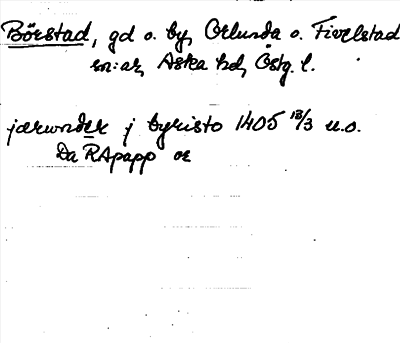 Börstad, gd o. by, Orlunda o. Fivelstad
sn:ar, Aska hd, Östg. l.
jærunder j byristo 1405 18/3 u.o.
Da RApapp or